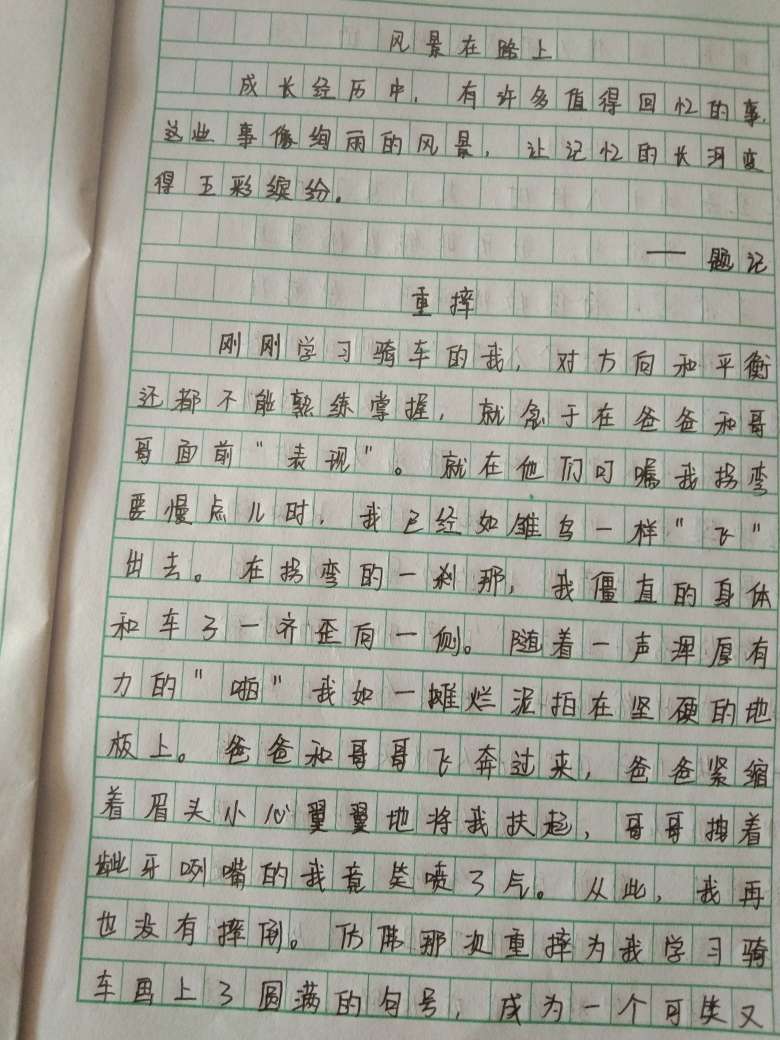 风景在路上
成长经历中，有许多值得回忆的事，
这些事像绚丽的风景，让记忆的长河变
得五彩缤纷。
——题记
重摔
刚刚学习骑车的我，对方向和平衡
还都不能熟练掌握，就急于在爸爸和哥
哥面前"表现"。就在他们叮嘱我拐弯
要慢点儿时，我已经如雏鸟一样"飞"
出去。在拐弯的一刹那，我僵直的身体
和车子一齐歪向一侧。随着一声浑厚有
力的"啪"我如一摊烂泥拍在坚硬的地
板上。爸爸和哥哥飞奔过来，爸爸紧缩
着眉头小心翼翼地将我扶起，哥哥拽着
龇牙咧嘴的我竟笑喷了气。从此，我再
也没有摔倒。仿佛那次重摔为我学习骑
车画上了圆满的句号，成为一个可笑又